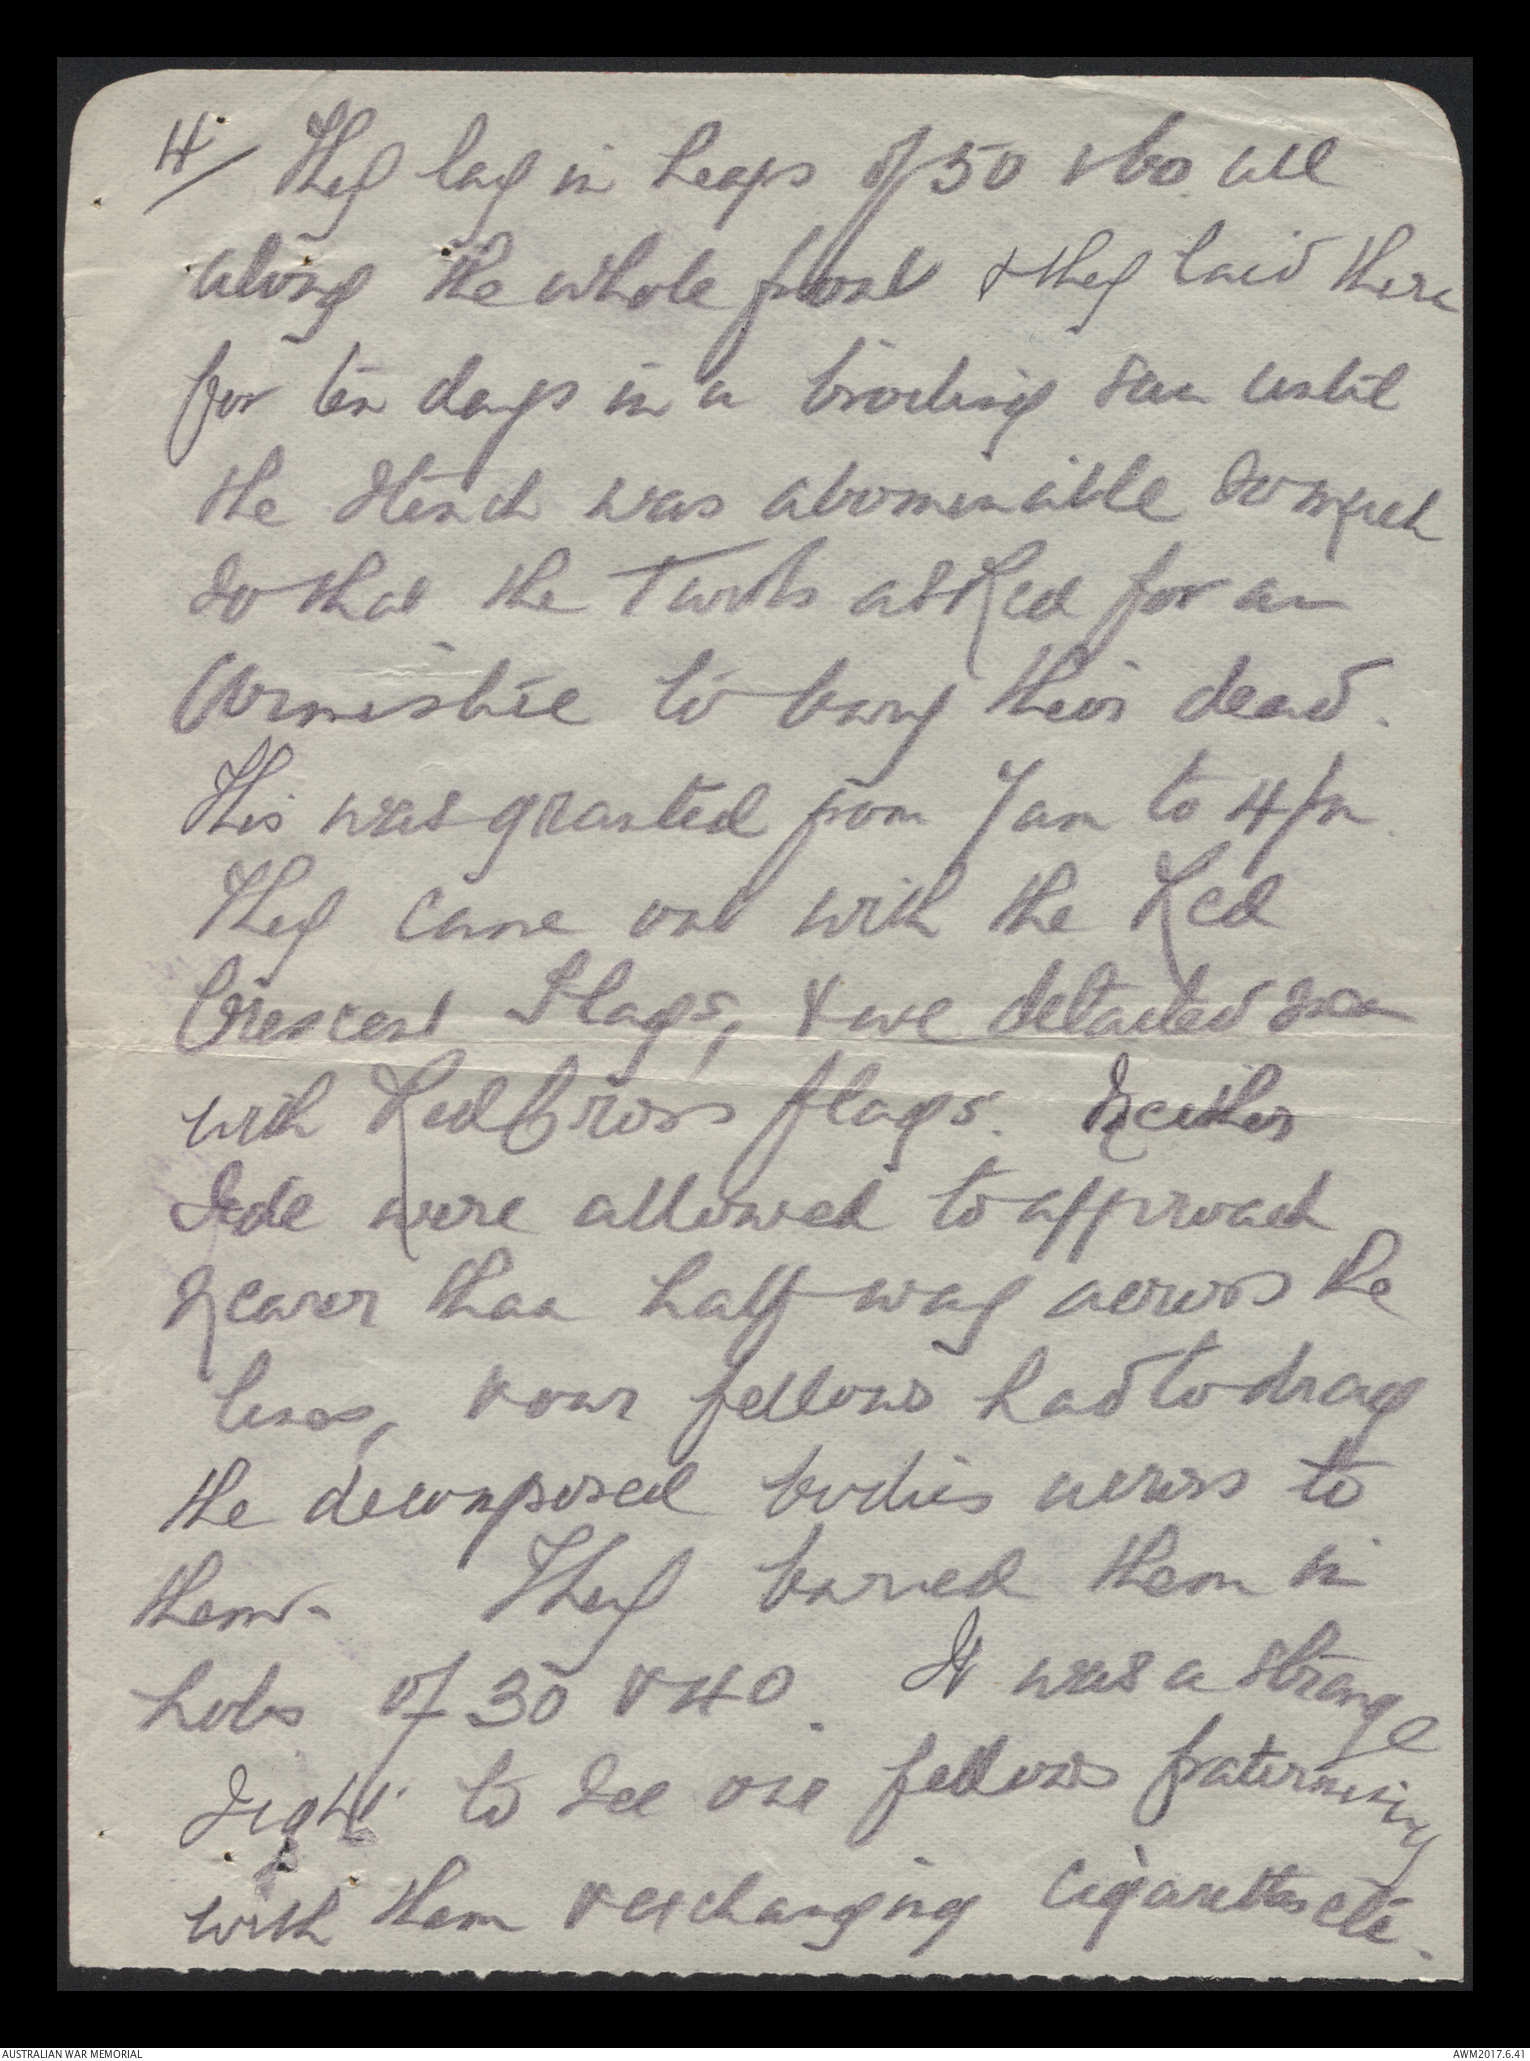 4/ They lay in heaps of 50 & 60 all
along the whole front & they laid there
for ten days in a broiling sun until
the stench was abominable so much
so that the Turks asked for an
Armistice to bury their dead.
This was granted from 7 am to 4 pm.
They came out with the Red
Crescent Flags, & we detailed men
with Red Cross flags. Neither
side were allowed to approach
nearer than half way across the
lines, & our fellows had to drag
the decomposed bodies across to
them. They buried them in
holes of 30 & 40. It was a strange
sight to see our fellows fraternising
with them & exchanging cigarettes etc.
AUSTRALIAN WAR MEMORIAL
AWM2017.6.41